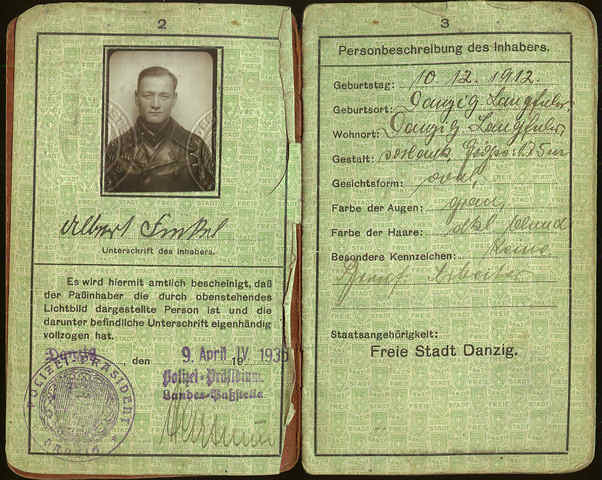 2
Albert Finkel
Unterschrift des Inhabers.
Es wird hiermit amtlich bescheinigt, daß
der Paßinhaber die durch obenstehendes
Lichtbild dargestellte Person ist und die
darunter befindliche Unterschrift eigenhändig
vollzogen hat.
Danzig, den 9. April IV 193
Polizei-Präsidium.
Landes-Paßstelle
POLIZEI-PRÄSIDENT
DANZIG
3
Personbeschreibung des Inhabers.
Geburtstag: 10. 12. 1912.
Geburtsort: Danzig Langfuhr
Wohnort: Danzig Langfuhr
Gestalt: schlank, 175 m
Gesichtsform: oval
Farbe der Augen: grau
Farbe der Haare: dkl blond
Besondere Kennzeichen: Keine
Arbeiter
Staatsangehörigkeit:
Freie Stadt Danzig.